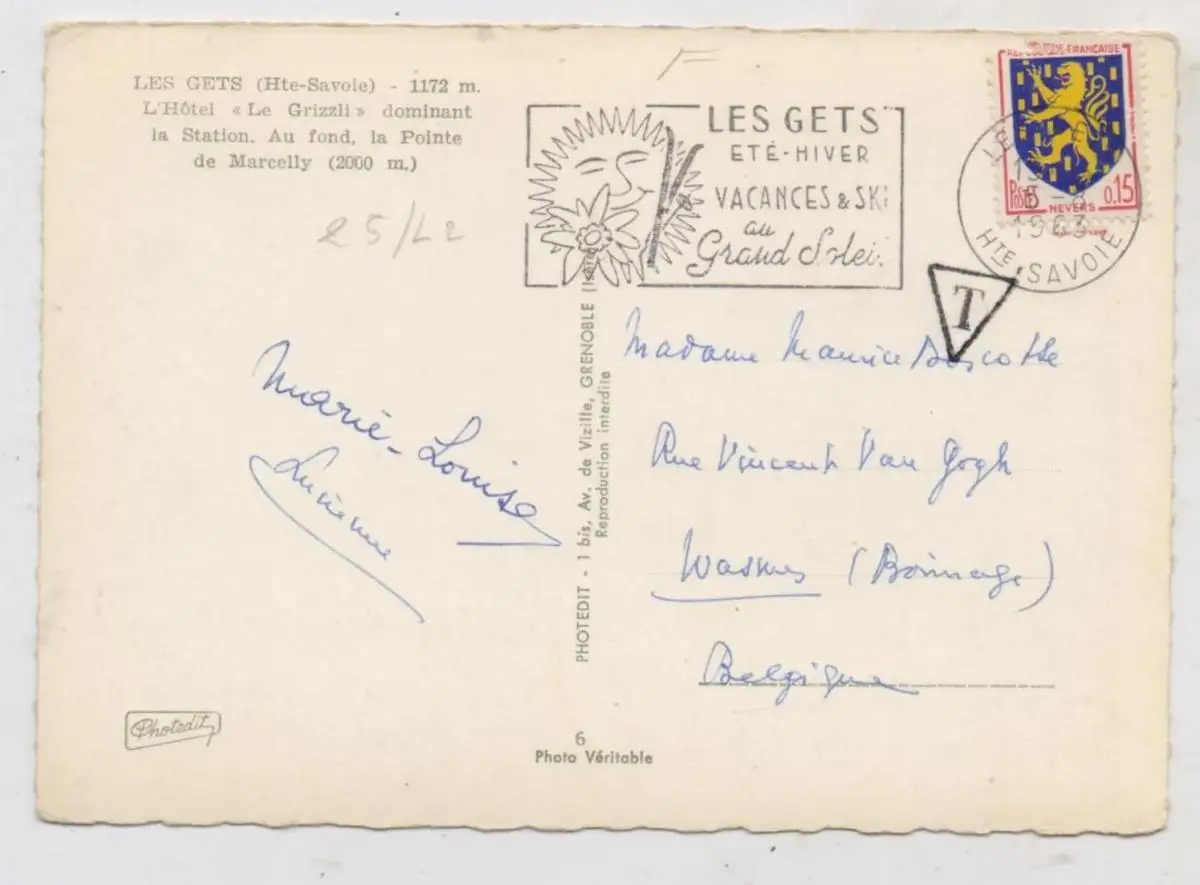 LES GETS (Hte-Savoie) - 1172 m.
L'Hôtel « Le Grizzli » dominant
la Station. Au fond, la Pointe
de Marcelly (2000 m.)
LES GETS
ETÉ-HIVER
VACANCES & SKi
au
Grand Solei
REPUBLIQUE FRANÇAISE
POSTES 0.15
NEVERS
1963
HTE SAVOIE
T
25/
Marie-Louise
Lucienne
PHOTEDIT - 1 bis, Av. de Vizille, GRENOBLE
Reproduction interdite
Madame Maurice
Rue Vincent Van Gogh
Wasmes (Borinage)
Belgique
Photedit
6
Photo Véritable